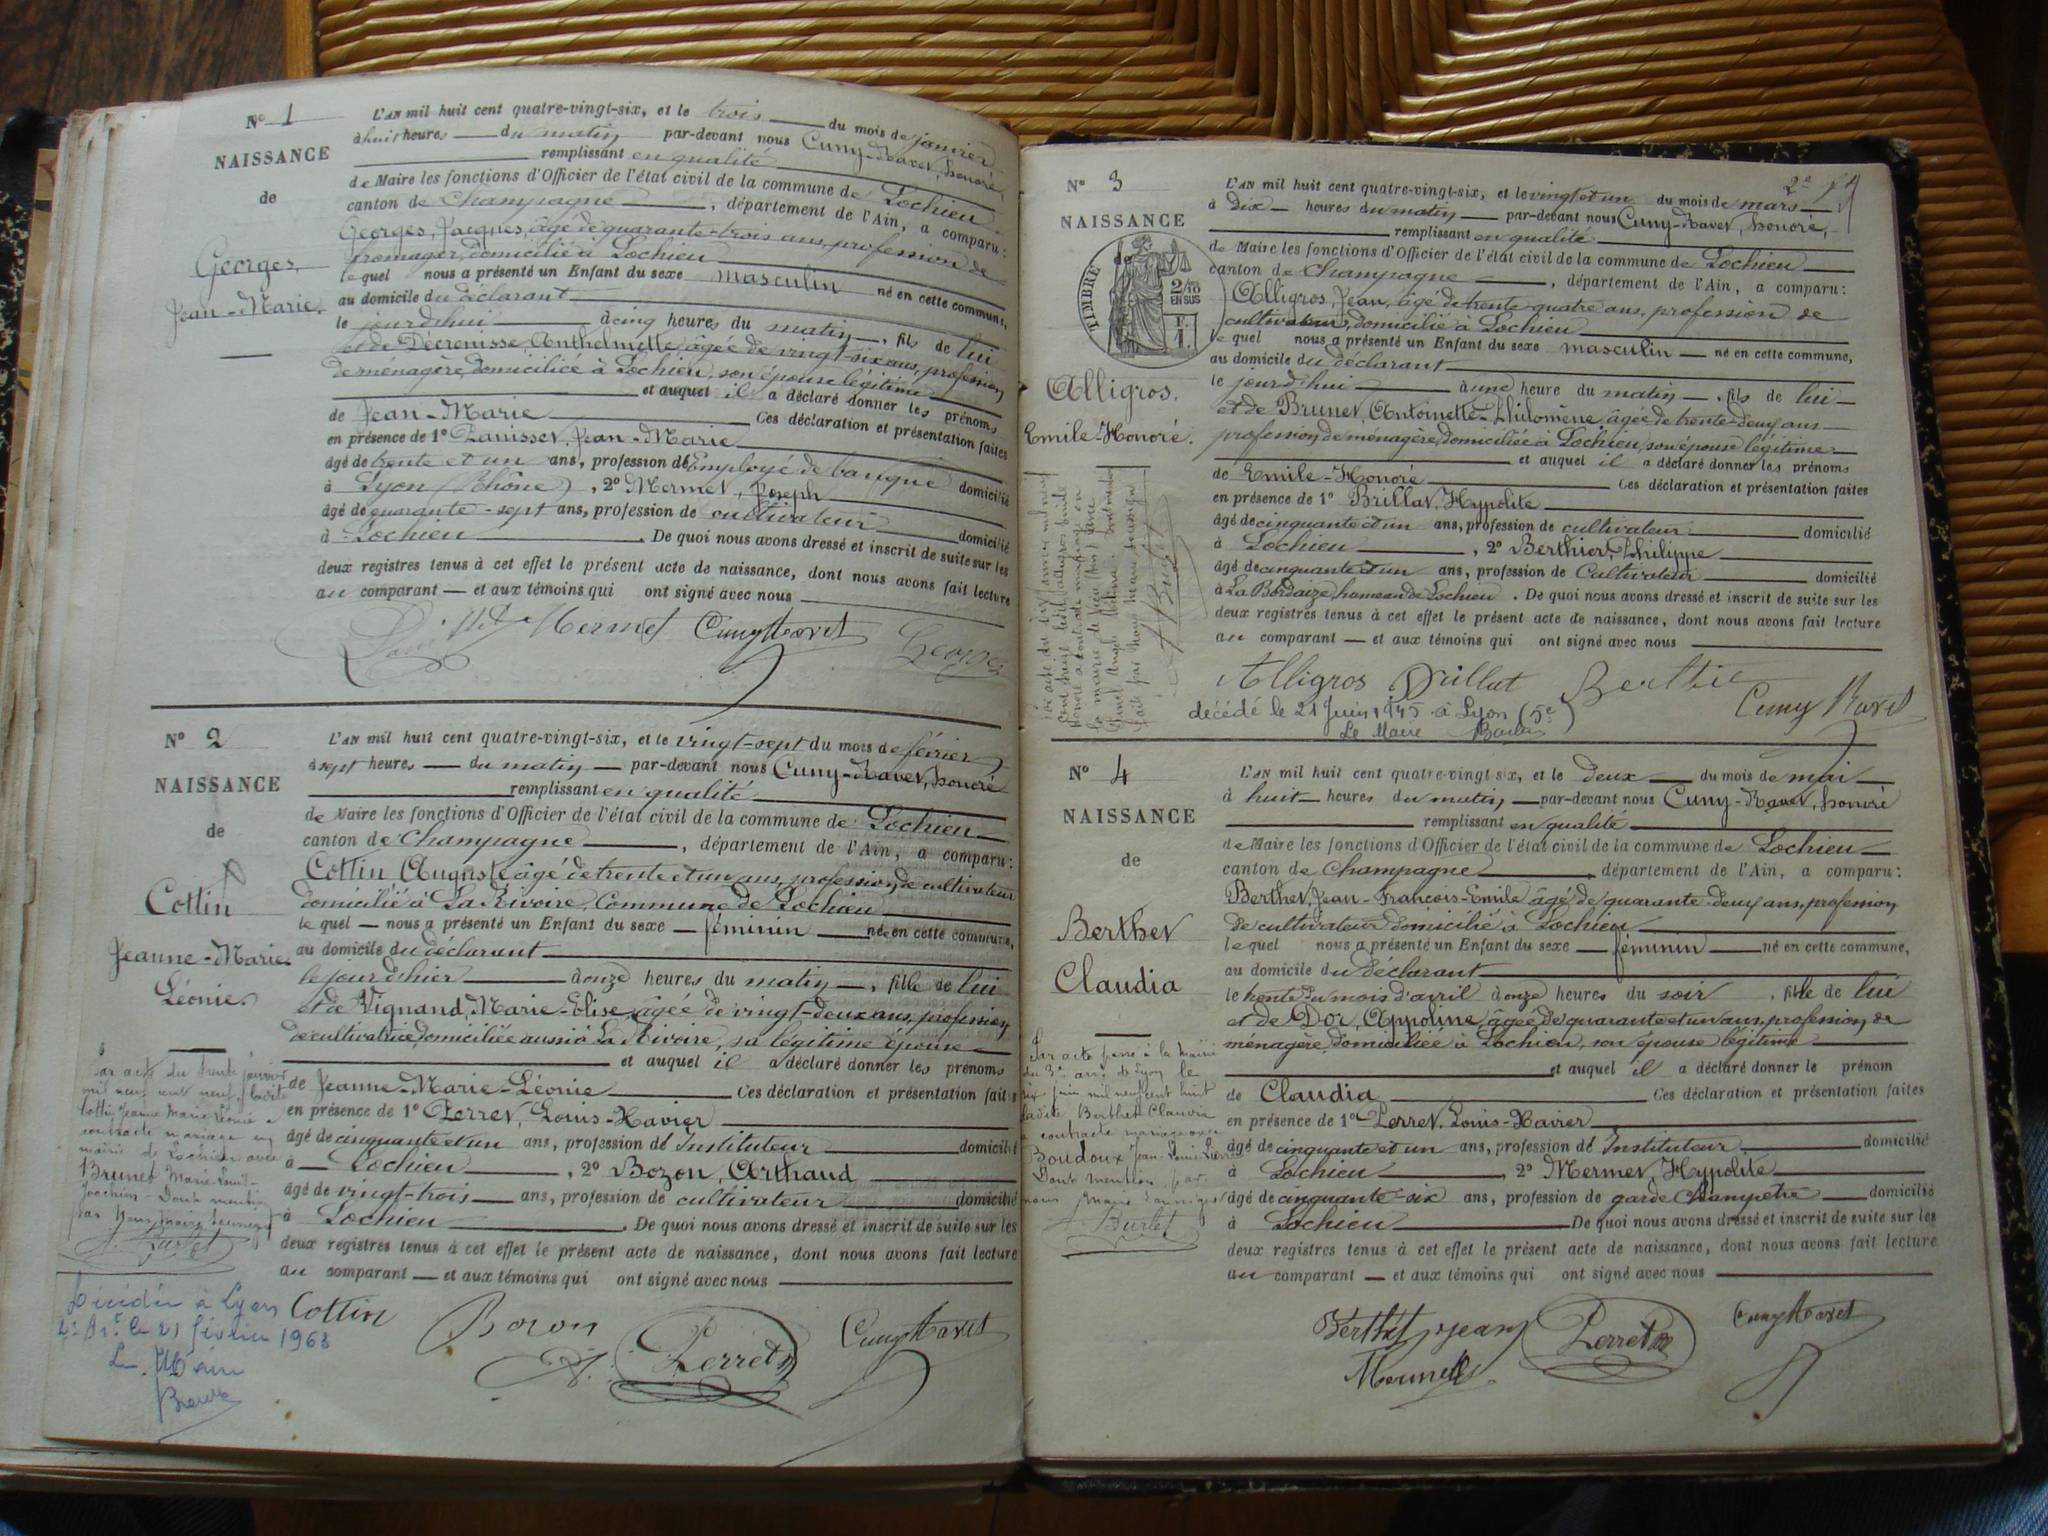 N° 1
NAISSANCE
de
Georges,
Jean-Marie.
L'AN mil huit cent quatre-vingt-six, et le trois du mois de janvier
à huit heures du matin par-devant nous Cuny-Ravet, honoré,
remplissant en qualité
de Maire les fonctions d'Officier de l'état civil de la commune de Lochieu
canton de Champagne, département de l'Ain, a comparu:
Georges, Jacques, âgé de quarante-trois ans, profession de
fromager, domicilié à Lochieu
le quel nous a présenté un Enfant du sexe masculin né en cette commune,
au domicile du déclarant
le jourd'hui à cinq heures du matin, fils de lui
et de Décrenisse, Anthelmette, âgée de vingt-six ans, profession
de ménagère, domiciliée à Lochieu, son épouse légitime
et auquel il a déclaré donner les prénoms
de Jean-Marie Ces déclaration et présentation faites
en présence de 1° Janisset, Jean-Marie
âgé de trente et un ans, profession de Employé de banque domicilié
à Lyon (Rhône), 2° Mermet, Joseph
âgé de quarante-sept ans, profession de cultivateur domicilié
à Lochieu. De quoi nous avons dressé et inscrit de suite sur les
deux registres tenus à cet effet le présent acte de naissance, dont nous avons fait lecture
au comparant et aux témoins qui ont signé avec nous
Mermet Cuny Ravet George
N° 2
NAISSANCE
de
Cottin
Jeanne-Marie
Léonie.
L'AN mil huit cent quatre-vingt-six, et le vingt-sept du mois de février
à sept heures du matin par-devant nous Cuny-Ravet, honoré
remplissant en qualité
de Maire les fonctions d'Officier de l'état civil de la commune de Lochieu
canton de Champagne, département de l'Ain, a comparu:
Cottin Auguste âgé de trente et un ans, profession de cultivateur
domicilié à La Rivoire, Commune de Lochieu
le quel nous a présenté un Enfant du sexe féminin née en cette commune,
au domicile du déclarant
le jour d'hier à onze heures du matin, fille de lui
et de Vignand, Marie-Elise, âgée de vingt-deux ans, profession
de cultivatrice, domiciliée aussi à La Rivoire, sa légitime épouse
et auquel il a déclaré donner les prénoms
de Jeanne-Marie-Léonie Ces déclaration et présentation faites
en présence de 1° Perret, Louis-Xavier
âgé de cinquante et un ans, profession de Instituteur domicilié
à Lochieu, 2° Bozon, Arthaud
âgé de vingt-trois ans, profession de cultivateur domicilié
à Lochieu. De quoi nous avons dressé et inscrit de suite sur les
deux registres tenus à cet effet le présent acte de naissance, dont nous avons fait lecture
au comparant et aux témoins qui ont signé avec nous
Par acte du trente janvier
mil neuf cent neuf, ladite
Cottin Jeanne Marie Léonie a
contracté mariage en
mairie de Lochieu avec
Brunet Marie-Louis-
Joachim - Dont mention
par Nous, Maire soussigné
Burlet
Décédée à Lyon
4e Art le 21 février 1963
Le Maire
Cottin Bozon Perret Cuny Ravet
2e
N° 3
NAISSANCE
de
TIMBRE
2/10
EN SUS
F.
1.
Alligros.
Emile-Honoré.
L'AN mil huit cent quatre-vingt-six, et le vingt et un du mois de mars
à dix heures du matin par-devant nous Cuny-Ravet, honoré,
remplissant en qualité
de Maire les fonctions d'Officier de l'état civil de la commune de Lochieu
canton de Champagne, département de l'Ain, a comparu:
Alligros, Jean, âgé de trente-quatre ans, profession de
cultivateur, domicilié à Lochieu
le quel nous a présenté un Enfant du sexe masculin né en cette commune,
au domicile du déclarant
le jourd'hui à une heure du matin, fils de lui
et de Brunet, Antoinette-Philomène âgée de trente-deux ans
profession de ménagère, domiciliée à Lochieu, son épouse légitime.
et auquel il a déclaré donner les prénoms
de Emile-Honoré Ces déclaration et présentation faites
en présence de 1° Brillat, Hypolite
âgé de cinquante et un ans, profession de cultivateur domicilié
à Lochieu, 2° Berthier, Philippe
âgé de cinquante et un ans, profession de Cultivateur domicilié
à La Bordaize, hameau de Lochieu. De quoi nous avons dressé et inscrit de suite sur les
deux registres tenus à cet effet le présent acte de naissance, dont nous avons fait lecture
au comparant et aux témoins qui ont signé avec nous
Alligros Brillat Berthier Cuny Ravet
décédé le 21 Juin 1945 à Lyon (5e)
Le Maire
N° 4
NAISSANCE
de
Berthet
Claudia
L'AN mil huit cent quatre-vingt six, et le deux du mois de mai
à huit heures du matin par-devant nous Cuny-Ravet, honoré
remplissant en qualité
de Maire les fonctions d'Officier de l'état civil de la commune de Lochieu
canton de Champagne, département de l'Ain, a comparu:
Berthet, Jean-François-Emile âgé de quarante-deux ans, profession
de cultivateur domicilié à Lochieu
le quel nous a présenté un Enfant du sexe féminin né en cette commune,
au domicile du déclarant
le trente du mois d'avril à onze heures du soir, fille de lui
et de Dor, Appoline âgée de quarante et un ans, profession de
ménagère, domiciliée à Lochieu, son épouse légitime
et auquel il a déclaré donner le prénom
de Claudia Ces déclaration et présentation faites
en présence de 1° Perret, Louis-Xavier
âgé de cinquante et un ans, profession de Instituteur domicilié
à Lochieu, 2° Mermet, Hypolite
âgé de cinquante-six ans, profession de garde champêtre domicilié
à Lochieu De quoi nous avons dressé et inscrit de suite sur les
deux registres tenus à cet effet le présent acte de naissance, dont nous avons fait lecture
au comparant et aux témoins qui ont signé avec nous
Par acte passé à la mairie
du 3e arrt de Lyon le
six juin mil neuf cent huit
ladite Berthet Claudia
a contracté mariage avec
Boudoux Jean-Louis-Pierre
Dont mention par
nous Maire soussigné
Burlet
Berthet jean Perret Cuny Ravet
Mermet